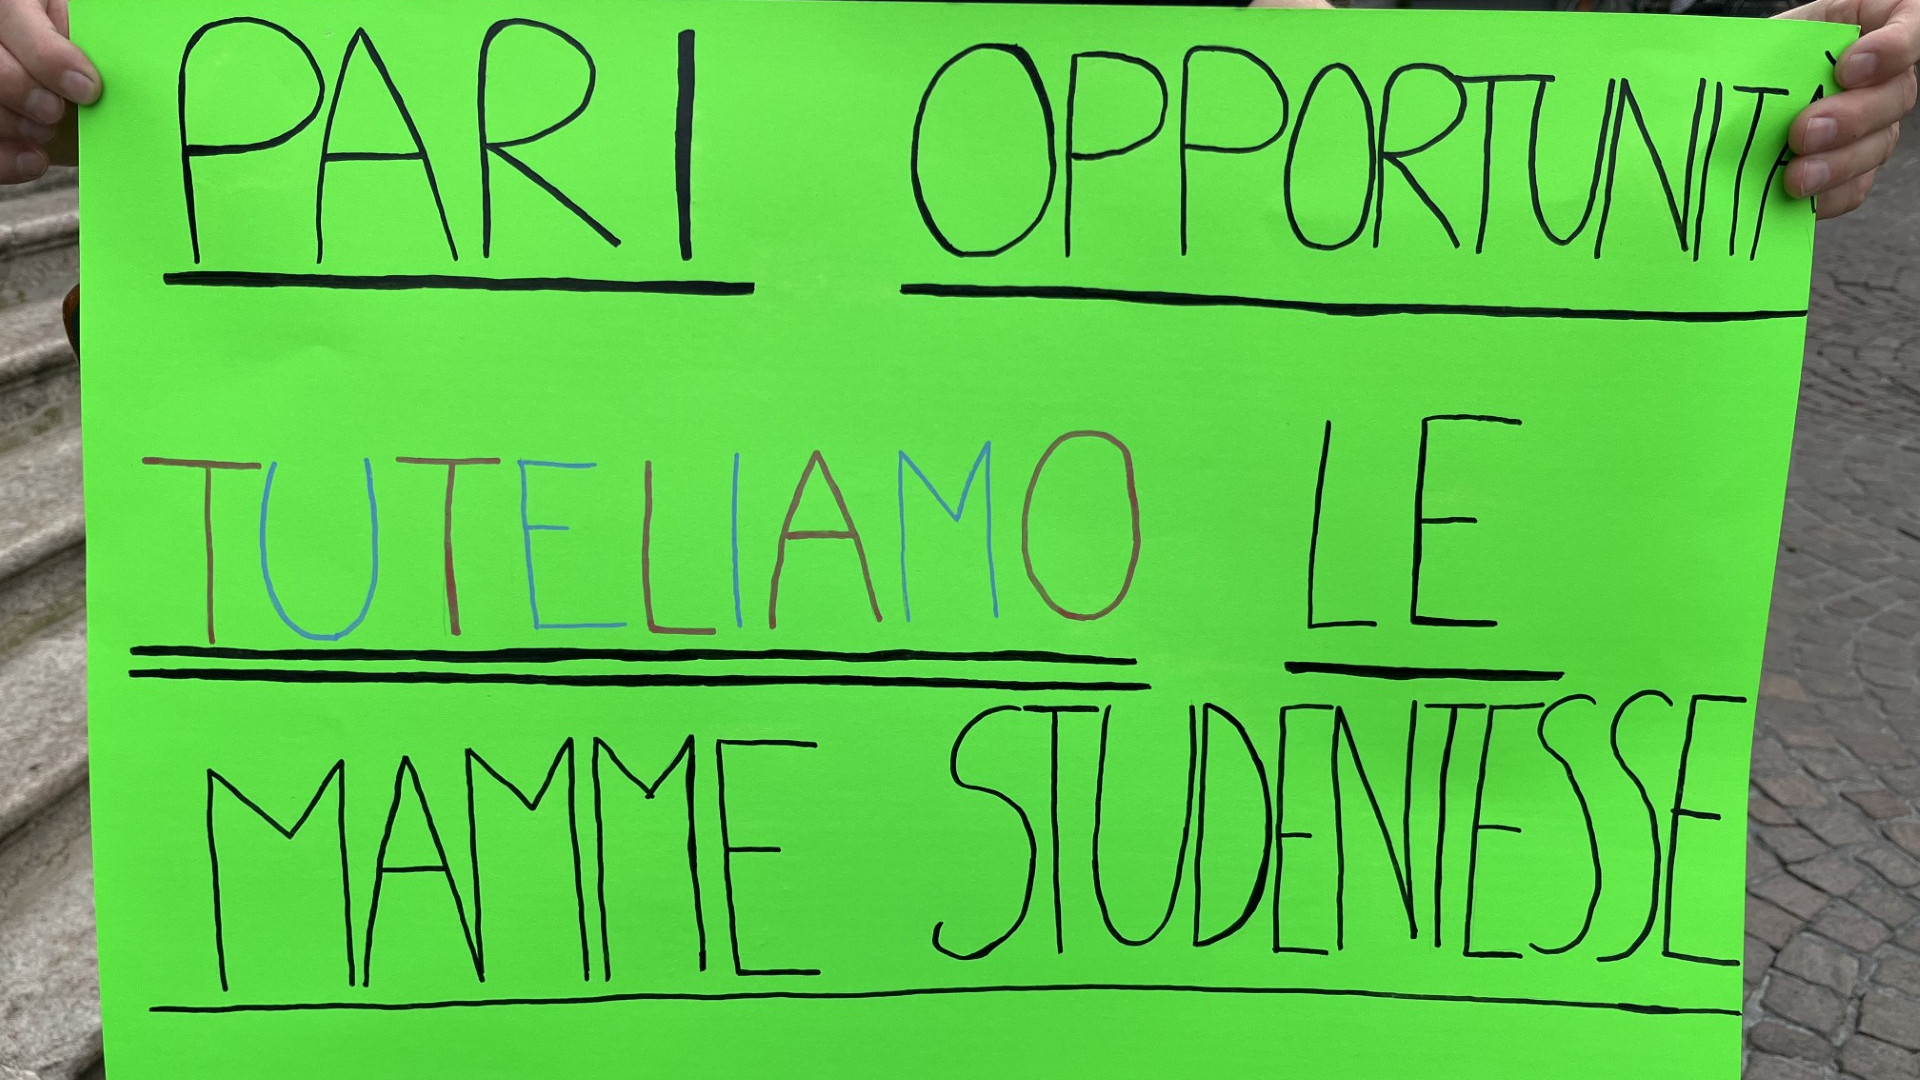 PARI OPPORTUNITÀ
TUTELIAMO LE
MAMME STUDENTESSE